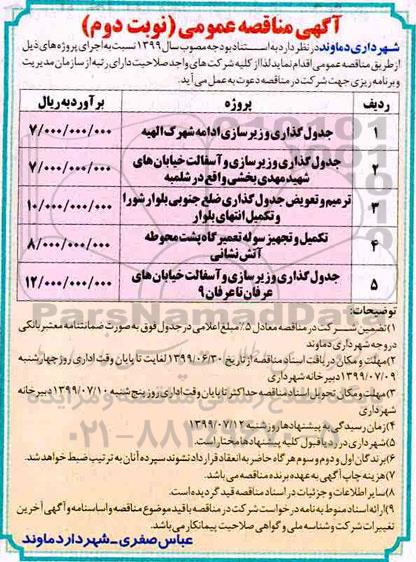 آگهی مناقصه عمومی (نوبت دوم)
شهرداری دماوند در نظر دارد به استناد بودجه مصوب سال ۱۳۹۹ نسبت به اجرای پروژه های ذیل
از طریق مناقصه عمومی اقدام نماید لذا از کلیه شرکت های واجد صلاحیت دارای رتبه از سازمان مدیریت
و برنامه ریزی جهت شرکت در مناقصه دعوت به عمل می آید
ردیف پروژه برآورد به ریال
۱ جدول گذاری و زیرسازی ادامه شهرک الهیه ۷/۰۰۰/۰۰۰/۰۰۰
۲ جدول گذاری و زیرسازی و آسفالت خیابان های شهید مهدی بخشی واقع در شلمبه ۷/۰۰۰/۰۰۰/۰۰۰
۳ ترمیم و تعویض جدول گذاری ضلع جنوبی بلوار شورا و تکمیل انتهای بلوار ۱۰/۰۰۰/۰۰۰/۰۰۰
۴ تکمیل و تجهیز سوله تعمیرگاه پشت محوطه آتش نشانی ۸/۰۰۰/۰۰۰/۰۰۰
۵ جدول گذاری و زیرسازی و آسفالت خیابان های عرفان تا عرفان ۹ ۱۲/۰۰۰/۰۰۰/۰۰۰
توضیحات:
۱) تضمین شرکت در مناقصه معادل ۵٪ مبلغ اعلامی در جدول فوق به صورت ضمانتنامه معتبر بانکی
در وجه شهرداری دماوند
۲) مهلت و مکان دریافت اسناد مناقصه از تاریخ ۱۳۹۹/۰۶/۳۰ لغایت تا پایان وقت اداری روز چهارشنبه
۱۳۹۹/۰۷/۰۹ دبیرخانه شهرداری
۳) مهلت و مکان تحویل اسناد مناقصه حداکثر تا پایان وقت اداری روز پنج شنبه ۱۳۹۹/۰۷/۱۰ دبیرخانه
شهرداری
۴) زمان رسیدگی به پیشنهادها روز شنبه ۱۳۹۹/۰۷/۱۲
۵) شهرداری در رد یا قبول کلیه پیشنهادها مختار است.
۶) برندگان اول و دوم و سوم هرگاه حاضر به انعقاد قرارداد نشوند سپرده آنان به ترتیب ضبط خواهد شد.
۷) هزینه چاپ آگهی به عهده برنده مناقصه می باشد.
۸) سایر اطلاعات و جزئیات در اسناد مناقصه قید گردیده است.
۹) ارائه اسناد منوط به نامه درخواست شرکت در مناقصه با قید موضوع مناقصه و اساسنامه و آگهی آخرین
تغییرات شرکت و شناسه ملی و گواهی صلاحیت پیمانکار می باشد.
عباس صفری - شهردار دماوند
ParsNamadData